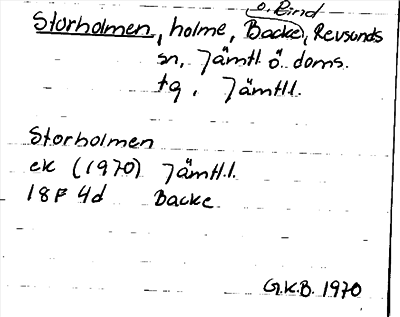 o. Bind
Storholmen, holme, Backe, Revsunds
sn, Jämtl. ö. doms.
tg, Jämtl.l.
Storholmen
ek (1970) Jämtl.l.
18F 4d Backe
G.K.B. 1970